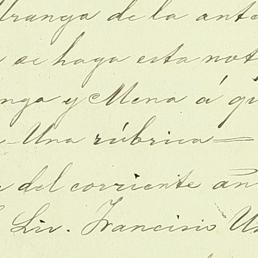 Uranga de la ante
se haga esta not
nga y Mena á qu
Una rúbrica=
del corriente an
Liv. Francisio U